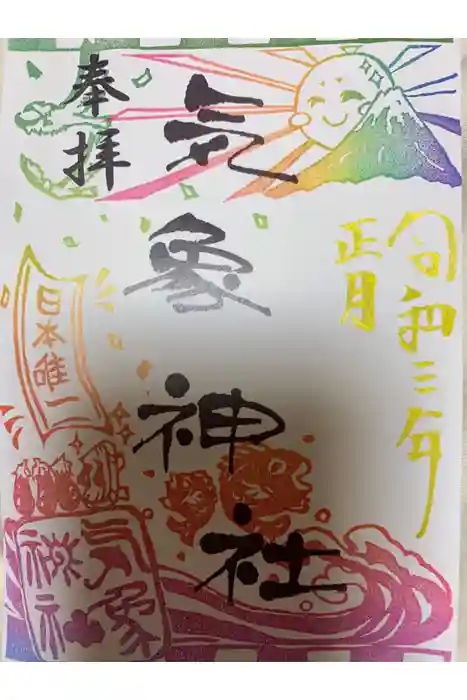 令和三年
正月
気象神社
奉拝
日本唯一
気象
神社